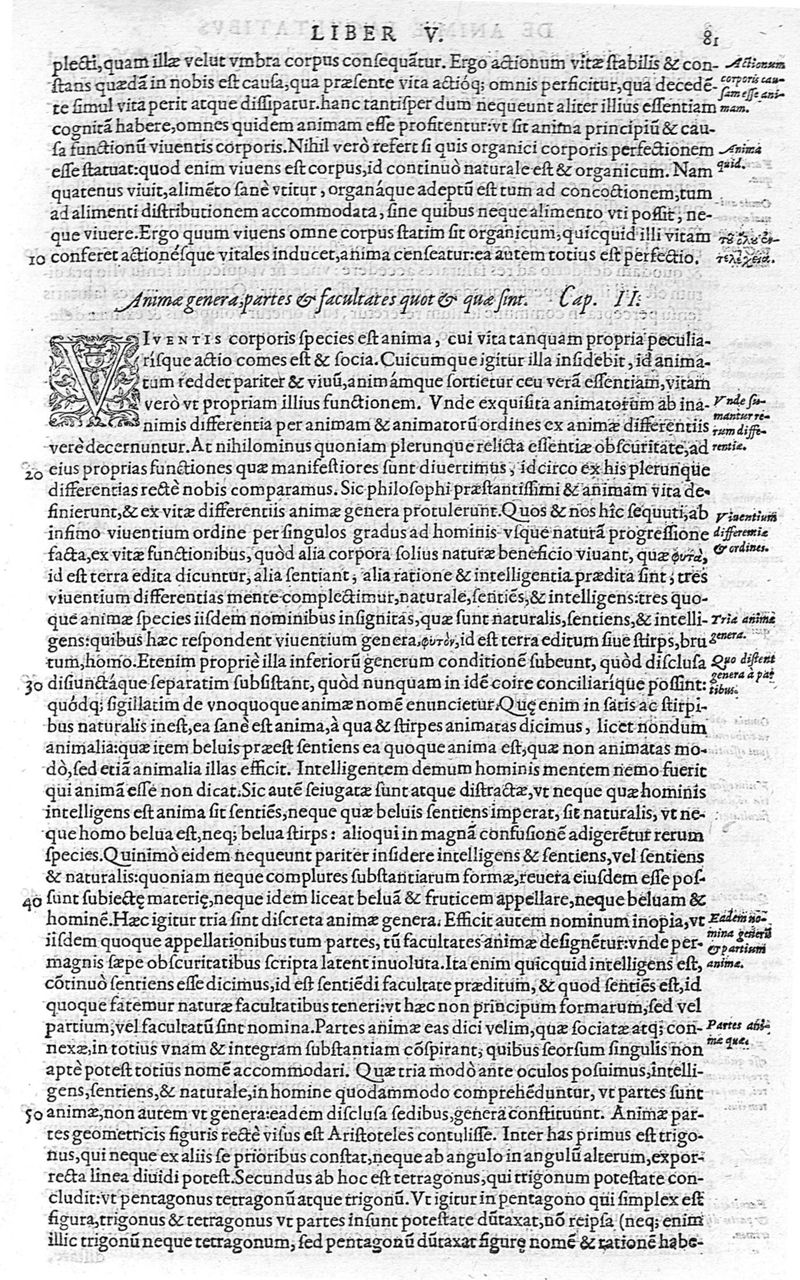 LIBER V. 81
plecti, quam illæ velut vmbra corpus consequātur. Ergo actionum vitæ stabilis & con-
stans quædā in nobis est causa, qua præsente vita actióq; omnis perficitur, qua decedē-
te simul vita perit atque dissipatur. hanc tantisper dum nequeunt aliter illius essentiam
cognitā habere, omnes quidem animam esse profitentur: vt sit anima principiū & cau-
sa functionū viuentis corporis. Nihil verò refert si quis organici corporis perfectionem
esse statuat: quod enim viuens est corpus, id continuò naturale est & organicum. Nam
quatenus viuit, alimēto sanè vtitur, organáque adeptū est tum ad concoctionem, tum
ad alimenti distributionem accommodata, sine quibus neque alimento vti possit, ne-
que viuere. Ergo quum viuens omne corpus statim sit organicum, quicquid illi vitam
10 conferet actionésque vitales inducet, anima censeatur: ea autem totius est perfectio.
Actionum
corporis cau-
sam esse ani-
mam.
Animā
quid.
Animæ genera, partes & facultates quot & quæ sint. Cap. II:
VIVENTIS corporis species est anima, cui vita tanquam propria peculia-
rísque actio comes est & socia. Cuicumque igitur illa insidebit, id anima-
tum reddet pariter & viuū, animámque sortietur ceu verā essentiam, vitam
verò vt propriam illius functionem. Vnde exquisita animatorum ab ina-
nimis differentia per animam & animatorū ordines ex animæ differentiis
verè decernuntur. At nihilominus quoniam plerunque relicta essentiæ obscuritate, ad
20 eius proprias functiones quæ manifestiores sunt diuertimus, idcirco ex his plerunque
differentias rectè nobis comparamus. Sic philosophi præstantissimi & animam vita de-
finierunt, & ex vitæ differentiis animæ genera protulerunt. Quos & nos hîc sequuti, ab
infimo viuentium ordine per singulos gradus ad hominis vsque naturā progressione
facta, ex vitæ functionibus, quòd alia corpora solius naturæ beneficio viuant, quæ φυτὰ,
id est terra edita dicuntur, alia sentiant, alia ratione & intelligentia prædita sint, tres
viuentium differentias mente complectimur, naturale, sentiēs, & intelligens: tres quo-
que animæ species iisdem nominibus insignitas, quæ sunt naturalis, sentiens, & intelli-
gens: quibus hæc respondent viuentium genera, φυτὸν, id est terra editum siue stirps, bru
tum, homo. Etenim propriè illa inferiorū generum conditionē subeunt, quòd disclusa
30 disiunctáque separatim subsistant, quòd nunquam in idē coire conciliaríque possint:
quódq; sigillatim de vnoquoque animæ nomē enuncietur. Quę enim in satis ac stirpi-
bus naturalis inest, ea sanè est anima, à qua & stirpes animatas dicimus, licet nondum
animalia: quæ item beluis præest sentiens ea quoque anima est, quæ non animatas mo-
dò, sed etiā animalia illas efficit. Intelligentem demum hominis mentem nemo fuerit
qui animā esse non dicat. Sic autē seiugatæ sunt atque distractæ, vt neque quæ hominis
intelligens est anima sit sentiēs, neque quæ beluis sentiens imperat, sit naturalis, vt ne-
que homo belua est, neq; belua stirps: alioqui in magnā confusionē adigerētur rerum
species. Quinimò eidem nequeunt pariter insidere intelligens & sentiens, vel sentiens
& naturalis: quoniam neque complures substantiarum formæ, reuera eiusdem esse pos-
40 sunt subiectę materię, neque idem liceat beluā & fruticem appellare, neque beluam &
hominē. Hæc igitur tria sint discreta animæ genera. Efficit autem nominum inopia, vt
iisdem quoque appellationibus tum partes, tū facultates animæ designētur: vnde per-
magnis sæpe obscuritatibus scripta latent inuoluta. Ita enim quicquid intelligens est,
cōtinuò sentiens esse dicimus, id est sentiēdi facultate præditum, & quod sentiēs est, id
quoque fatemur naturæ facultatibus teneri: vt hæc non principum formarum, sed vel
partium, vel facultatū sint nomina. Partes animæ eas dici velim, quæ sociatæ atq; con-
nexæ, in totius vnam & integram substantiam cōspirant, quibus seorsum singulis non
aptè potest totius nomē accommodari. Quæ tria modò ante oculos posuimus, intelli-
gens, sentiens, & naturale, in homine quodammodo comprehēduntur, vt partes sunt
50 animæ, non autem vt genera: eadem disclusa sedibus, genera constituunt. Animæ par-
tes geometricis figuris rectè visus est Aristoteles contulisse. Inter has primus est trigo-
nus, qui neque ex aliis se prioribus constat, neque ab angulo in angulū alterum, expor-
recta linea diuidi potest. Secundus ab hoc est tetragonus, qui trigonum potestate con-
cludit: vt pentagonus tetragonū atque trigonū. Vt igitur in pentagono qui simplex est
figura, trigonus & tetragonus vt partes insunt potestate dūtaxat, nō reipsa (neq; enim
illic trigonū neque tetragonum, sed pentagonū dūtaxat figurę nomē & rationē habe-
Vnde su-
mantur re-
rum diffe-
rentiæ.
Viuentium
differentiæ
& ordines.
Tria animæ
genera.
Quo distent
genera à par
tibus.
Eadem no-
mina generū
& partium
animæ.
Partes ani-
mæ quæ.